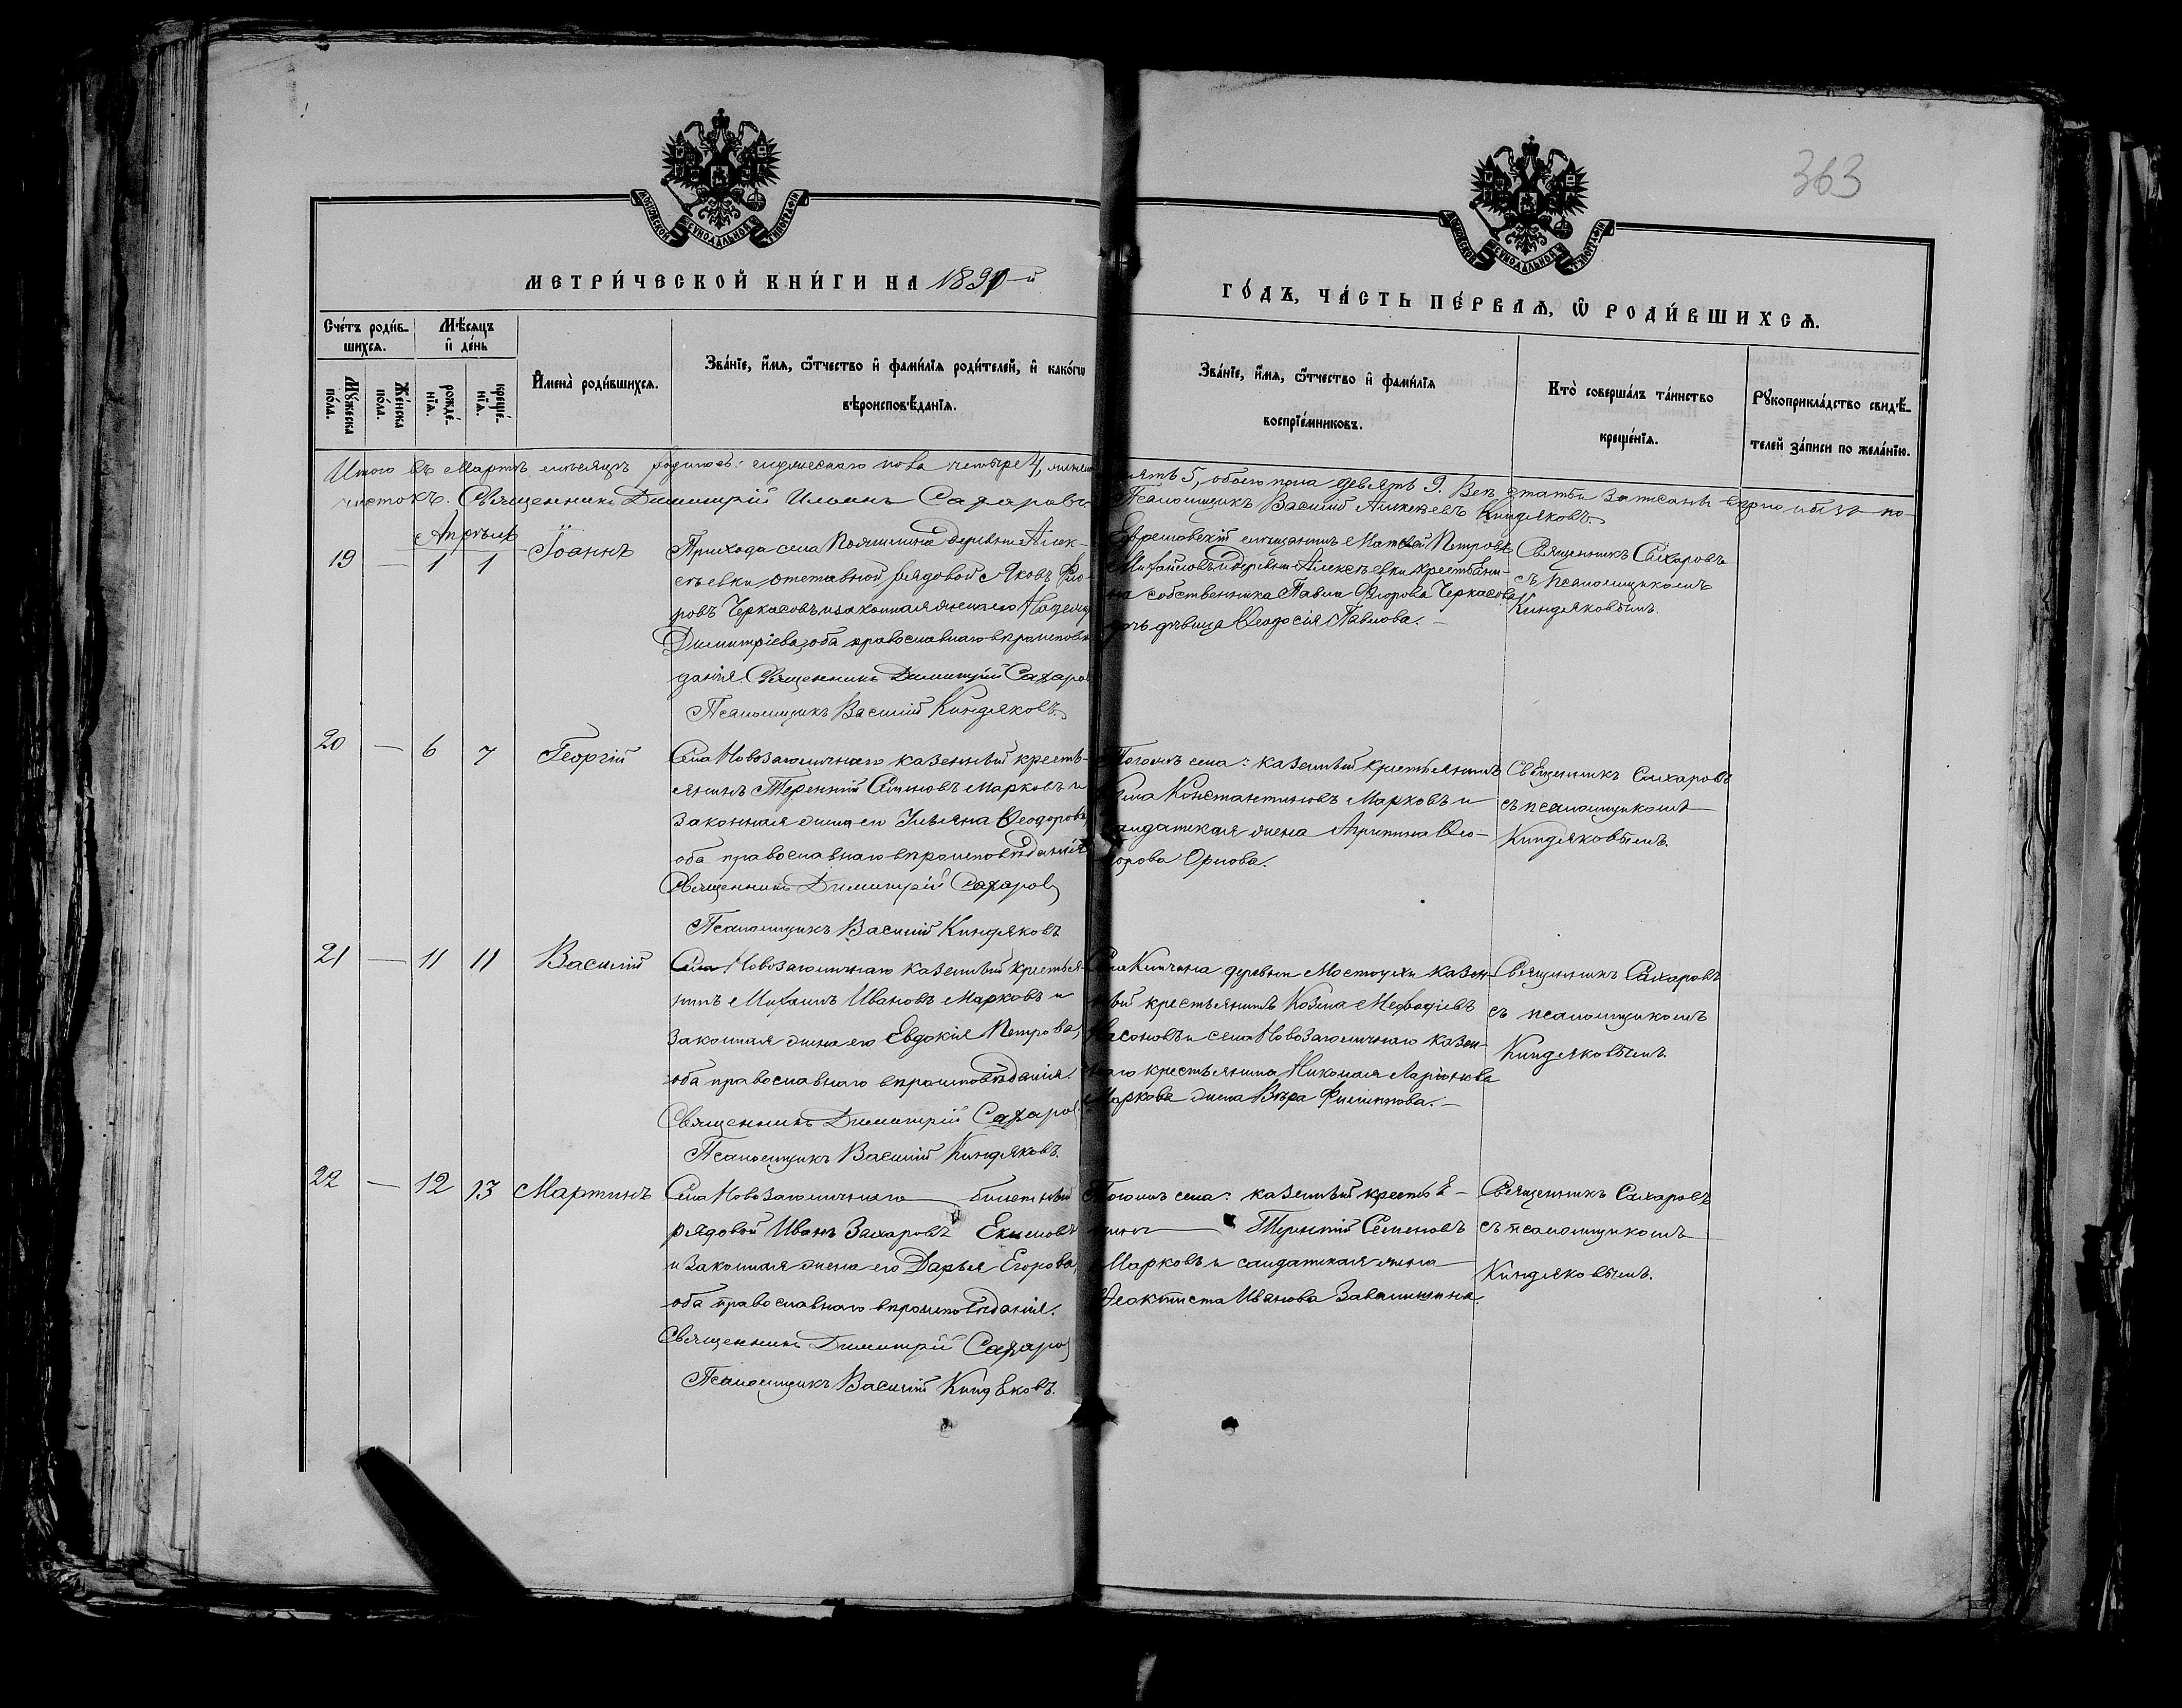 363
МОСКОВСКОЙ СУНОДАЛЬНОЙ ТИПОГРАФІИ
МОСКОВСКОЙ СУНОДАЛЬНОЙ ТИПОГРАФІИ
МЕТРИ́ЧЕСКОЙ КНИ́ГИ НА 1890-й
ГО́ДЪ, ЧА́СТЬ ПЕ́РВАѦ, Ѡ РОДИ́ВШИХСѦ.
Сче́тъ роди́в-
шихся.
Мѣ́сяцъ
и де́нь
Мꙋ́жеска по́ла.
Же́нска по́ла.
рожде́-нїя.
креще́-нїя.
Имена̀ роди́вшихся.
Зва́нїе, и́мя, ѻ҆́тчество и фами́лїя роди́телей, и како́гѡ
вѣроисповѣ́данїя.
Зва́нїе, и́мя, ѻ҆́тчество и фами́лїя
воспрїе́мниковъ.
Кто̀ соверша́лъ та́инство
креще́нїя.
Рꙋкоприкла́дство свидѣ́-
телей за́писи по жела́нїю.
Итого въ Мартѣ мѣсяцѣ родилось: мужескаго пола четыре 4, женск
пять 5, обоего пола девять 9. Всѣ статьи записаны вѣрно и безъ по-
чистокъ. Священникъ Димитрій Сахаровъ
Псаломщикъ Василій Алексѣевъ Киндяковъ.
Апрѣль
19 — 1 1 Іоаннъ
Прихода села деревни Алек-
сѣевки отставной рядовой Яковъ Фло-
ровъ Черкасовъ и законная жена его
Димитріева, оба православнаго вѣроисповѣ
данія. Священникъ Димитрій Сахаров
Псаломщикъ Василій Киндяковъ.
мѣщанинъ Матвей Петровъ
Михайловъ и деревни Алексѣевки крестьяни-
на собственника Павла Флорова Черкасова
дочь дѣвица Ѳеодосія Павлова. —
Священникъ Сахаровъ
съ псаломщикомъ
Киндяковымъ.
20 — 6 7 Георгій
Села Новозахаричнаго казенный кресть-
янинъ Терентій Семеновъ Марковъ и
законная жена его Ульяна Ѳеодорова
оба православнаго вѣроисповѣданія
Священникъ Димитрій Сахаровъ
Псаломщикъ Василій Киндяковъ
Тогожъ села: казенный крестьянинъ
Константиновъ Марковъ и
солдатская жена Агрипина Ѳео-
дорова Орлова.
Священникъ Сахаровъ
съ псаломщикомъ
Киндяковымъ.
21 — 11 11 Василій
Села казенный крестья-
нинъ Михаилъ Ивановъ Марковъ и
законная жена его Евдокія Петрова,
оба православнаго вѣроисповѣданія.
Священникъ Димитрій Сахаров
Псаломщикъ Василій Киндяковъ.
Села деревни казен-
ный крестьянинъ Козма Меѳодіевъ
и села казен-
наго крестьянина Николая Ларіонова
Маркова жена Вѣра Филиппова. —
Священникъ Сахаровъ
съ псаломщикомъ
Киндяковымъ
22 — 12 13 Мартинъ
Села билетный
рядовой Иванъ Захаровъ Екимовъ
и законная жена его Дарья Егорова,
оба православнаго вѣроисповѣданія.
Священникъ Димитрій Сахаров
Псаломщикъ Василій Киндяковъ.
Тогожъ села: казенный крестья-
нинъ — Терентій Семеновъ
Марковъ и солдатская жена
Ѳеоктиста Иванова Завалишина.
Священникъ Сахаровъ
съ псаломщикомъ
Киндяковымъ.